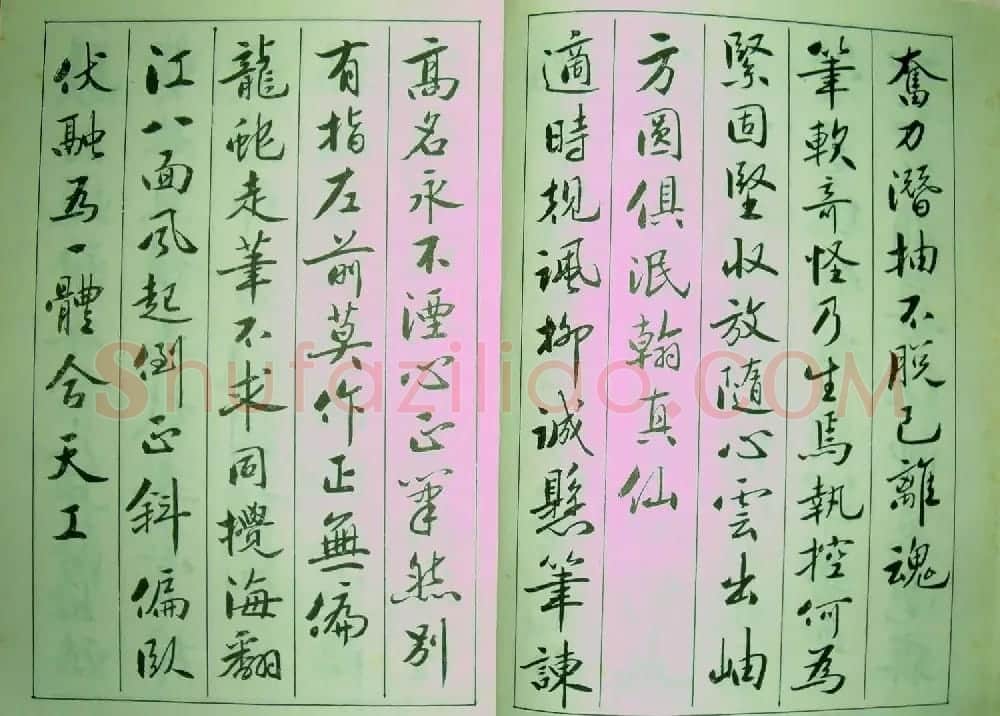 奮力潛抽不脫已離魂
筆軟奇怪乃生焉執控何為
緊固堅收放隨心雲出岫
方圓俱泯翰真仙
適時規諷柳誠懸筆諫
高名永不湮心正筆然別
有指左前莫作正無偏
龍蛇走筆不求同攪海翻
江八面風起倒正斜偏臥
伏融為一體含天工
Shufaziliao.COM